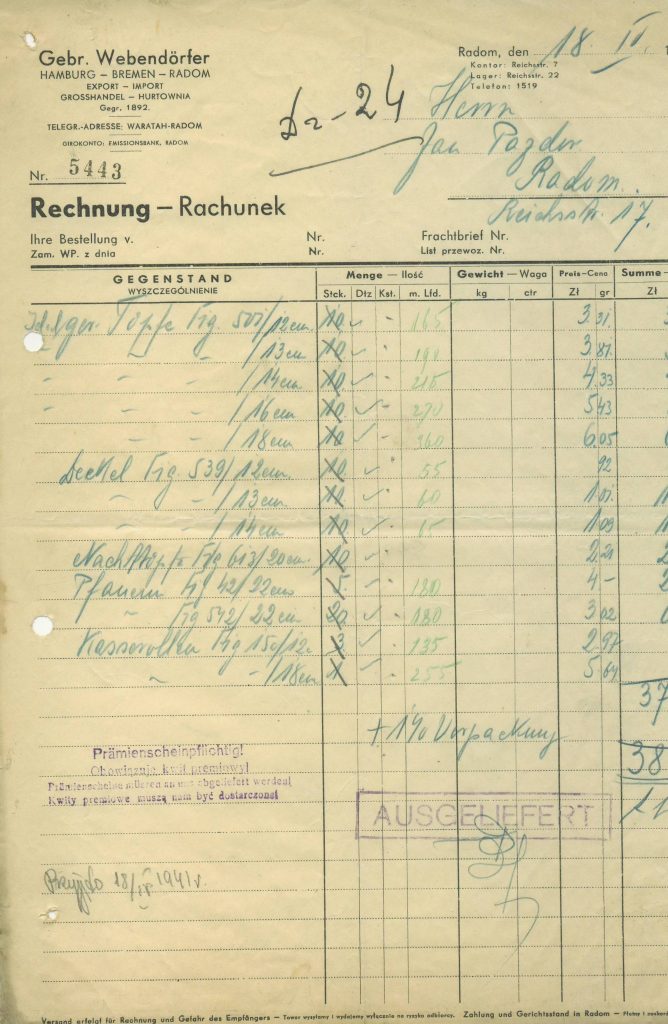 Gebr. Webendörfer
HAMBURG – BREMEN – RADOM
EXPORT – IMPORT
GROSSHANDEL – HURTOWNIA
Gegr. 1892.
TELEGR.-ADRESSE: WARATAH-RADOM
GIROKONTO: EMISSIONSBANK, RADOM
Nr. 5443
Radom, den 18. IV. 1
Kontor: Reichsstr. 7
Lager: Reichsstr. 22
Telefon: 1519
Dz-24
Herrn
Jan Pazdur
Radom.
Reichsstr. 17.
Rechnung – Rachunek
Ihre Bestellung v. Nr. Frachtbrief Nr.
Zam. WP. z dnia Nr. List przewoz. Nr.
GEGENSTAND Menge – Ilość Gewicht – Waga Preis-Cena Summe –
WYSZCZEGÓLNIENIE Stck. Dtz Kst. m. Lfd. kg ctr Zł gr Zł
Töpfe Fig. 507/12cm. 10 - 165 3.31
" " " /13cm 10 - 190 3.87
" " " /14cm 10 - 215 4.33
" " " /16cm 10 - 270 5.43
" " /18cm 10 - 360 6.05
Deckel Fig 539/12cm. 10 55 92
" " /13cm 10 60 1.01
" " /14cm 10 65 1.09
Fig 613/20cm. 10 2.21
Pfannen Fig 42/22cm 5 180 4 –
" Fig 542/22cm 20 180 3.02
Kasserollen Fig 150/12 3 135 2.97
" " /18cm 1 255 5.64
37
+ 1% Verpackung
38
Prämienscheinpflichtig!
Obowiązuje kwit premiowy!
Prämienscheine müssen an uns abgeliefert werden!
Kwity premiowe muszą nam być dostarczone!
AUSGELIEFERT
18/IV 1941 r.
Versand erfolgt für Rechnung und Gefahr des Empfängers – Towar wysyłamy i wydajemy wyłącznie na ryzyko odbiorcy. Zahlung und Gerichtsstand in Radom –